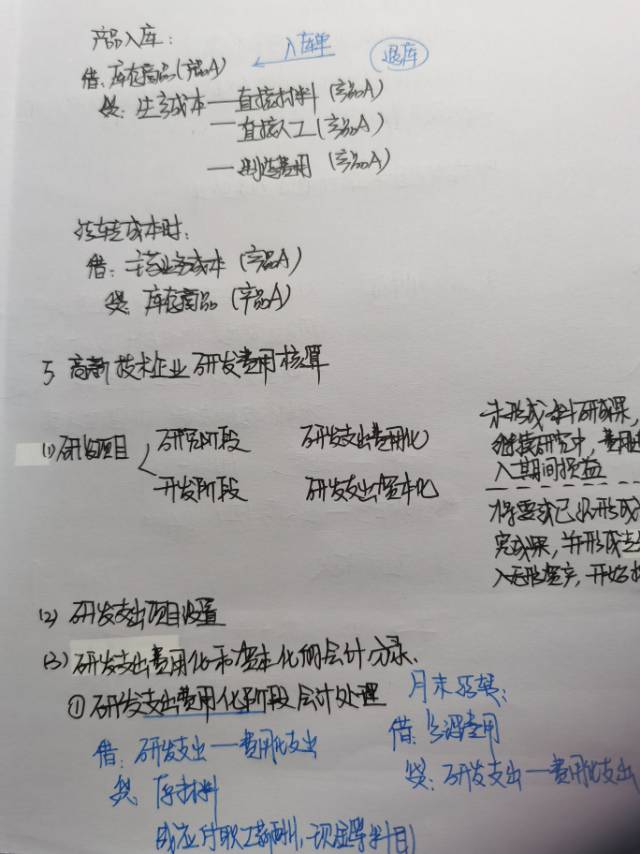 产品入库：
入库单
退库
借：库存商品(产品A)
贷：生产成本——直接材料(产品A)
——直接人工(产品A)
——制造费用(产品A)
结转成本时：
借：主营业务成本(产品A)
贷：库存商品(产品A)
5 高新技术企业研发费用核算
(1)研发项目
研究阶段 研发支出费用化
未形成 研成果，
继续研究中，费用
入期间损益
开发阶段 研发支出资本化
将要或已经形成
完成果，并形成
入无形资产，开始
(2) 研发支出项目设置
(3) 研发支出费用化和资本化的会计分录.
①研发支出费用化阶段会计处理
借：研发支出—费用化支出
贷：原材料
或应付职工薪酬，现金等科目
月末结转：
借：管理费用
贷：研发支出—费用化支出